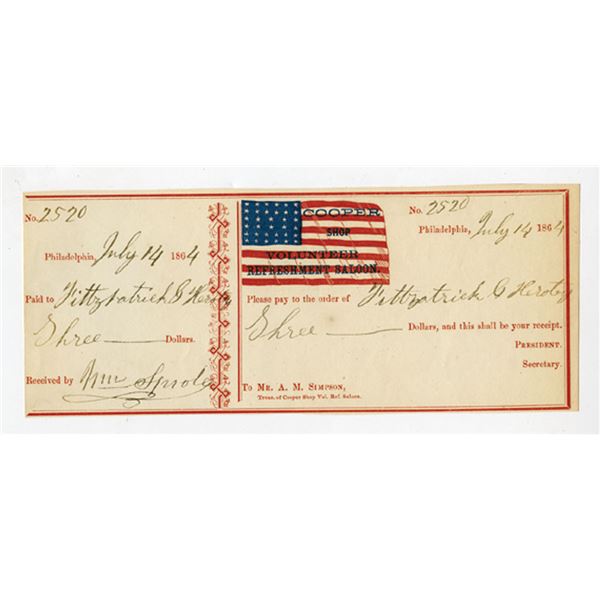 No. 2520
Philadelphia, July 14 1864
Paid to Fittzpatrick &
Three Dollars.
Received by Wm
COOPER
SHOP
VOLUNTEER
REFRESHMENT SALOON.
No. 2520
Philadelphia, July 14 1864
Please pay to the order of Fittzpatrick &
Three Dollars, and this shall be your receipt.
PRESIDENT.
Secretary.
To MR. A. M. SIMPSON,
Treas. of Cooper Shop Vol. Ref. Saloon.